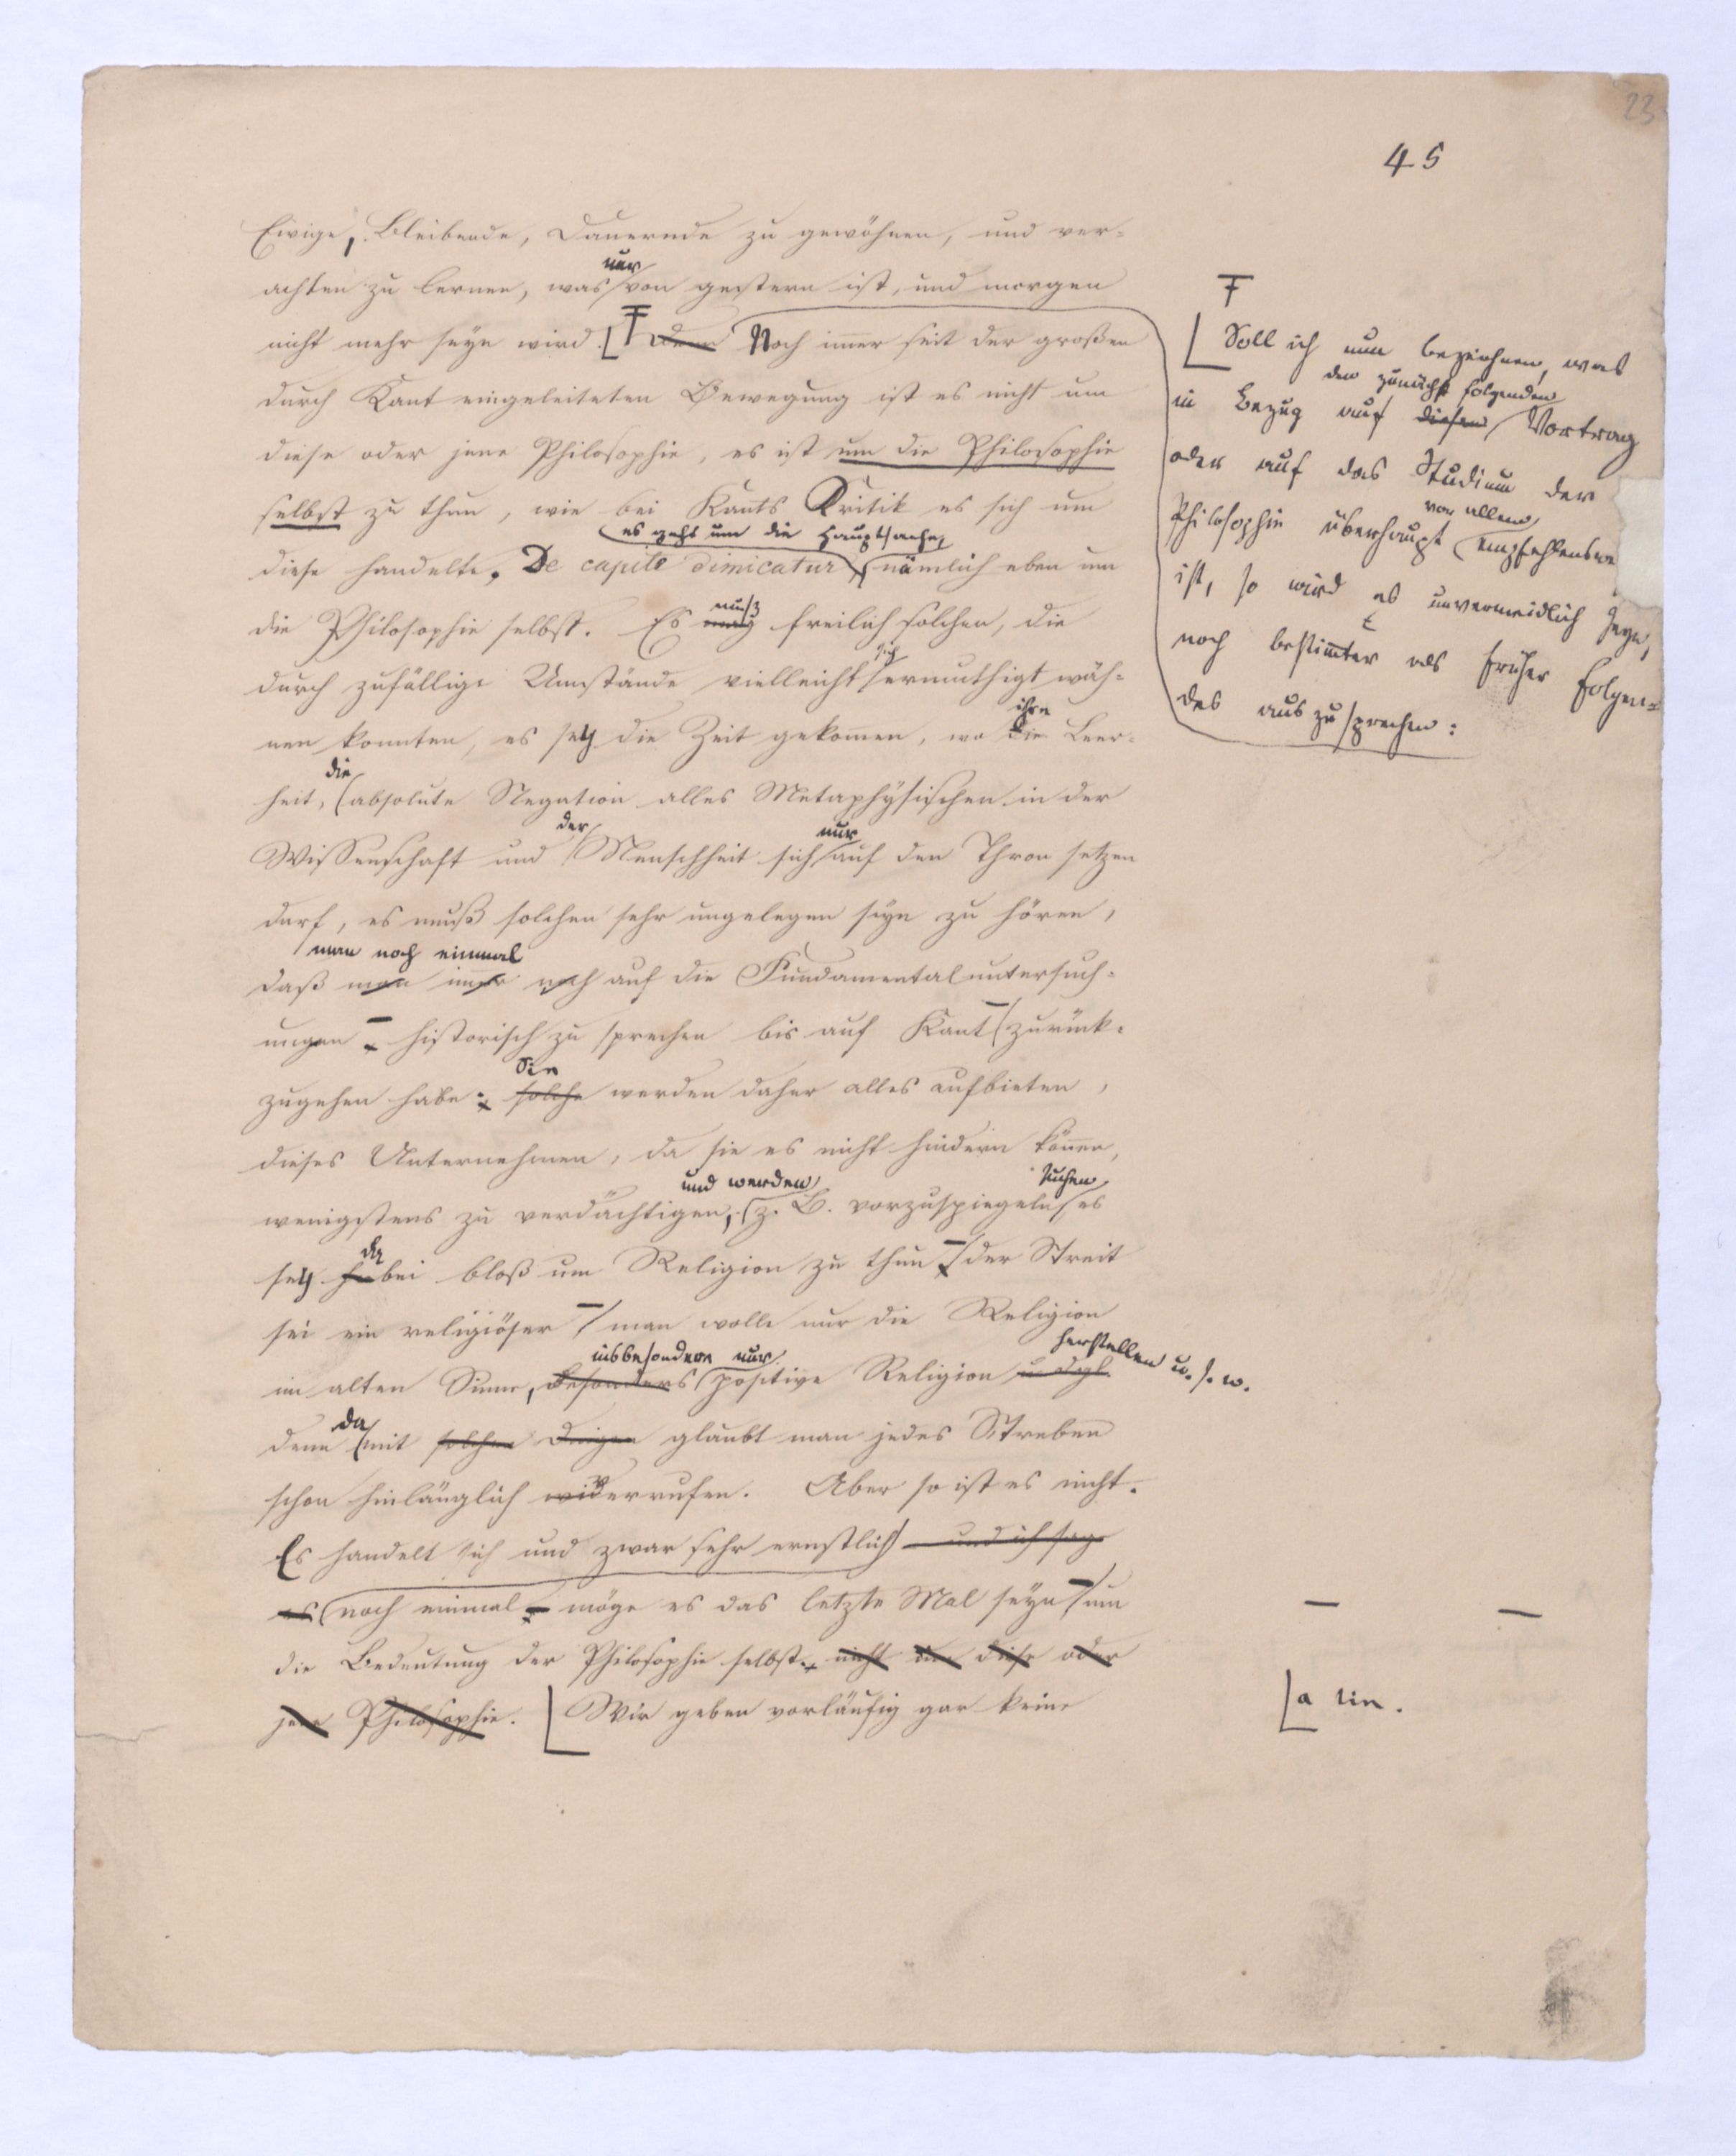 23
45
Ewige, Bleibende, Dauernde zu gewöhnen, und ver-
nur
achten zu lernen, was von gestern ist, und morgen
nicht mehr seyn wird. Noch immer seit der großen
durch Kant eingeleiteten Bewegung ist es nicht um
diese oder jene Philosophie, es ist um die Philosophie
selbst zu thun, wie bei Kants Kritik es sich um
es geht um die Hauptsache,
diese handelte. De capite dimicatur, nämlich eben um
muß
die Philosophie selbst. Es mag freilich solchen, die
sich
durch zufällige Umstände vielleicht ermuthigt wäh-
ihre
nen konnten, es sey die Zeit gekommen, wo die Leer-
die
heit, absolute Negation alles Metaphysischen in der
der nur
Wissenschaft und Menschheit sich auf den Thron setzen
darf, es muß solchen sehr ungelegen seyn zu hören,
man noch einmal
daß man immer noch auf die Fundamentaluntersuch-
ungen – historisch zu sprechen bis auf Kant – zurück-
Sie
zugehen habe; solche werden daher alles aufbieten,
dieses Unternehmen, da sie es nicht hindern können,
und werden suchen
wenigstens zu verdächtigen, z. B. vorzuspiegeln, es
da
sey hiebei bloß um Religion zu thun – der Streit
sei ein religiöser – man wolle nur die Religion
insbesondere nur herstellen u. s. w.
im alten Sinne, besonders positive Religion u. dgl.
da
denn mit solchen Dingen glaubt man jedes Streben
schon hinlänglich verrufen. Aber so ist es nicht.
Es handelt sich und zwar sehr ernstlich – und ich sage
es noch einmal – möge es das letzte Mal seyn – um
die Bedeutung der Philosophie selbst, nicht um diese oder
jene Philosophie. Wir geben vorläufig gar keine
Soll ich nun bezeichnen, was
den zunächst folgenden
in Bezug auf diesen Vortrag
oder auf das Studium der
vor allem
Philosophie überhaupt empfehlenswe
ist, so wird es unvermeidlich seyn,
noch bestimmter als früher Folgen-
des auszusprechen:
– –
a lin.